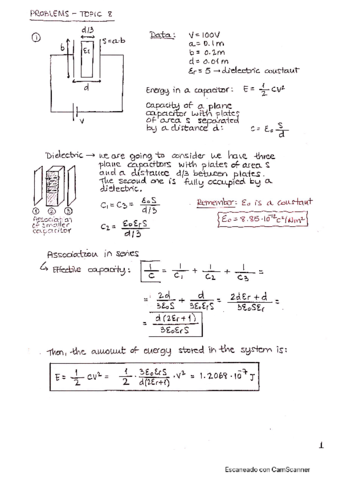 PROBLEMS - TOPIC 8
① d/3 S=a·b
b Er b
d
V
Data: V=100V
a=0.1m
b=0.2m
d=0.01m
Er=5→dielectric constant
Energy in a capacitor: E = 1/2 CV²
Capacity of a plane
capacitor with plates
of area S separated
by a distance d: C = ε₀ S/d
Dielectric → we are going to consider we have three
plane capacitors with plates of area S
and a distance d/3 between plates.
The second one is fully occupied by a
dielectric.
① ② ③
Association
of smaller
capacitor
C₁ = C₃ = ε₀S / d/3
C₂ = ε₀εrS / d/3
Remember: ε₀ is a constant
ε₀ = 8.85·10⁻¹² C²/Nm²
Association in series
↳ Effective capacity: 1/C = 1/C₁ + 1/C₂ + 1/C₃ =
= 2d/3ε₀S + d/3ε₀εrS = 2dεr + d / 3ε₀Sεr =
= d(2εr+1) / 3ε₀εrS
Then, the amount of energy stored in the system is:
E = 1/2 CV² = 1/2 · 3ε₀εrS / d(2εr+1) · V² = 1.2069·10⁻⁷ J
1
Escaneado con CamScanner